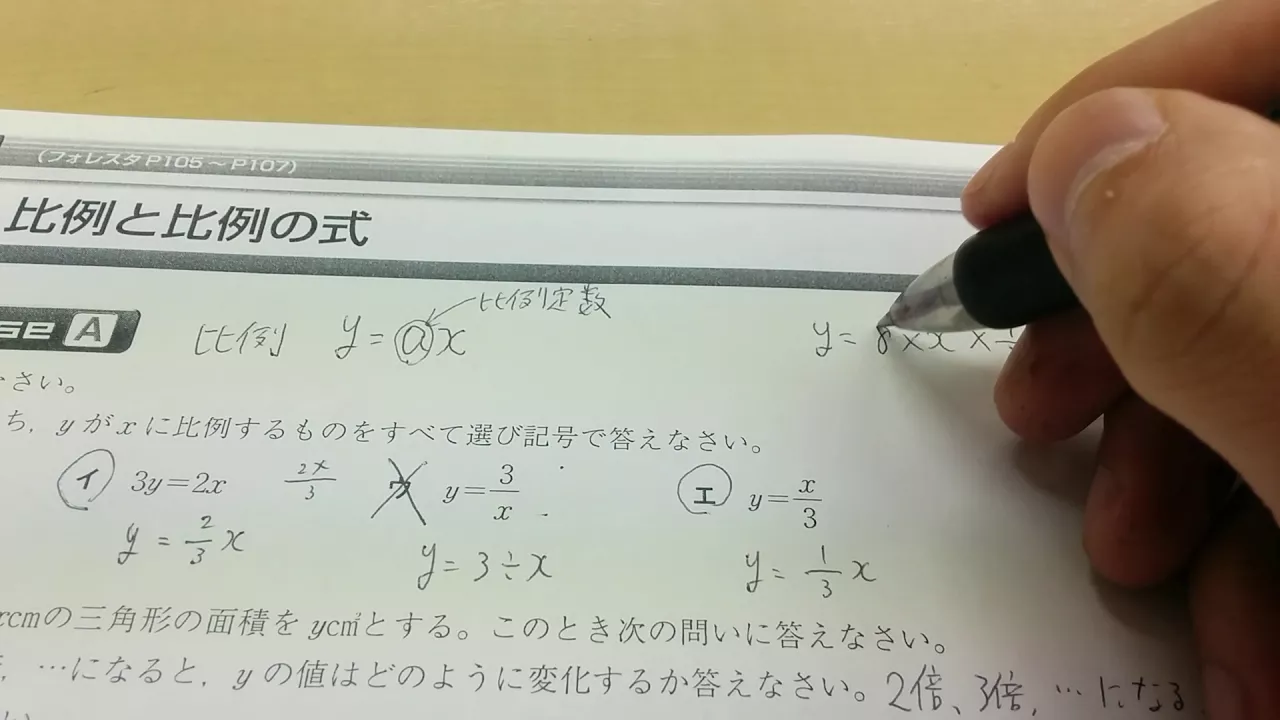 (フォレスタP105～P107)
比例と比例の式
se A
比例 y=ax 比例定数
y=8×x×
さい。
ち, yがxに比例するものをすべて選び記号で答えなさい。
イ 3y=2x 2x/3 ウ y=3/x エ y=x/3
y=2/3x y=3÷x y=1/3x
xcmの三角形の面積をycm²とする。このとき次の問いに答えなさい。
, …になると, yの値はどのように変化するか答えなさい。2倍、3倍, …になる